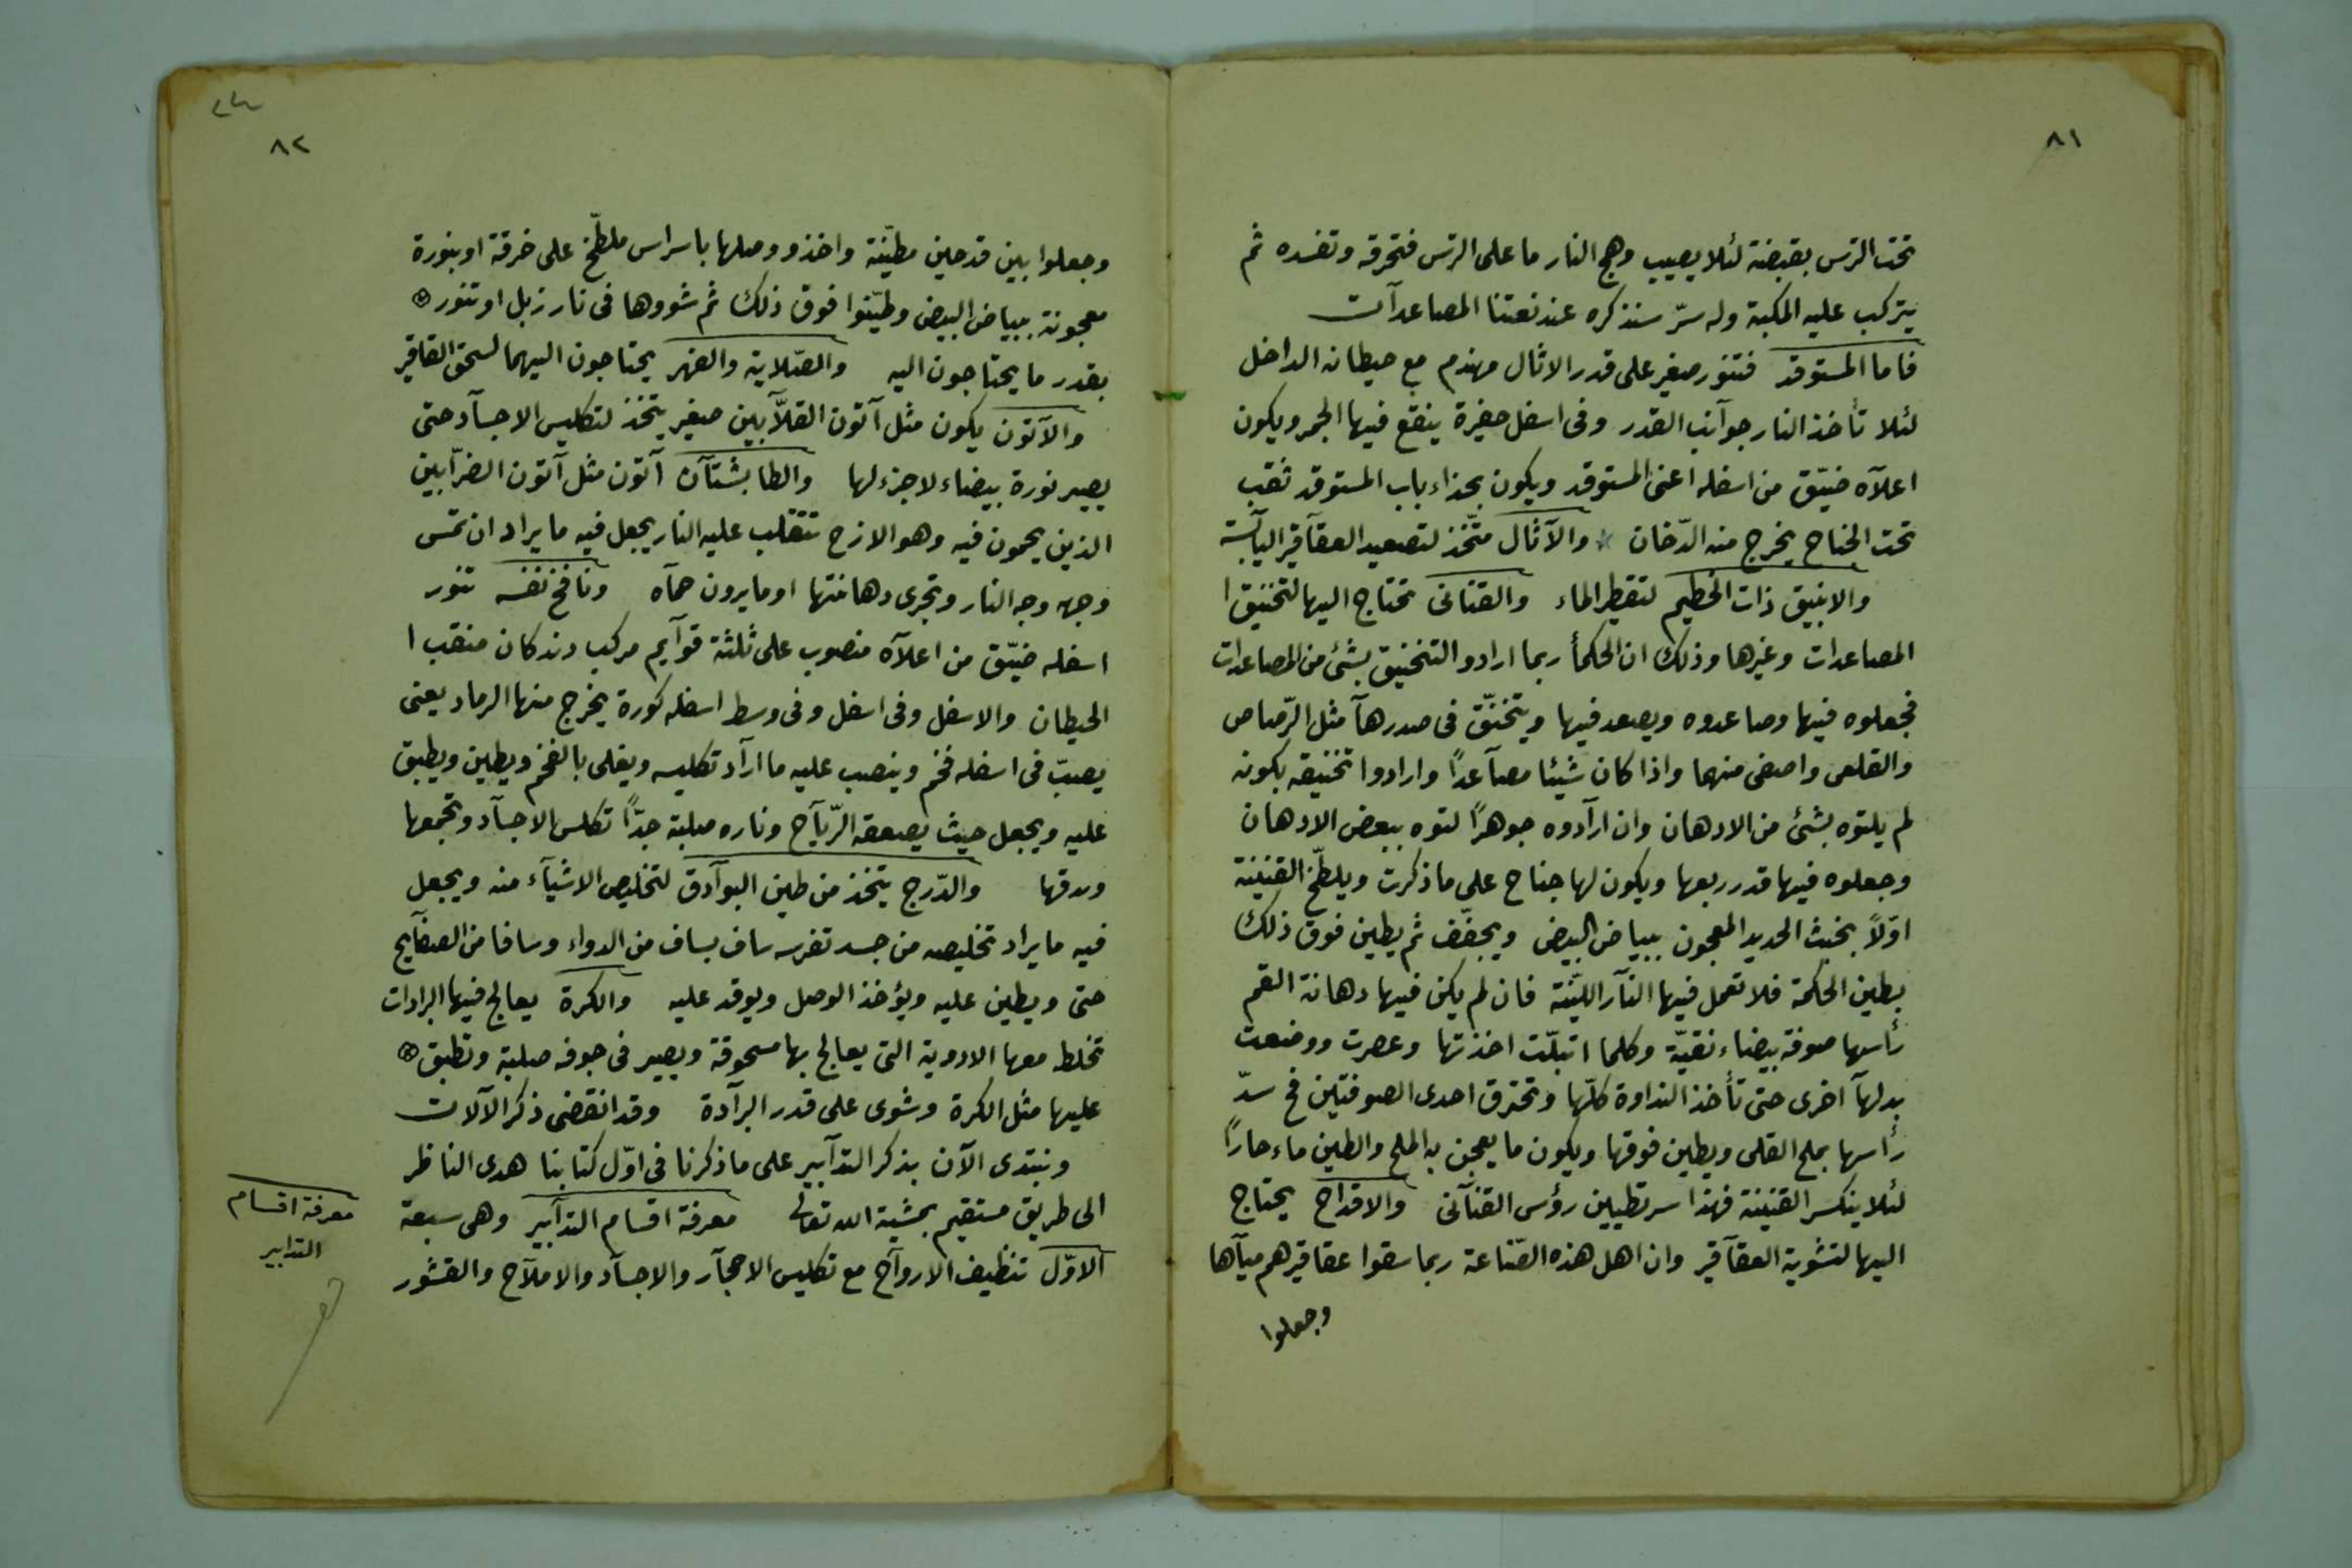 ٨١
تحت الترس بقبضة لئلا يصيب وهج النار ما على الترس فتحرقه وتفسده ثم
يتركب عليه المكبة وله سرّ سنذكره عند نعتنا المصاعدآت
فاما المستوقد فتنور صغير على قدر الاثال مهندم مع حيطانه الداخل
لئلا تأخذ النار جوآنب القدر وفى اسفل حفيرة ينقع فيها الجمر ويكون
اعلآه ضيّق من اسفله اعنى المستوقد ويكون بحذاء باب المستوقد ثقب
تحت الجناح يخرج منه الدّخان والآثال متّخذ لتصعيد العقآقير اليآبسة
والانبيق ذات الخطيم لتقطير الماء والقنانى تحتاج اليها لتخنيق ا
المصاعدات وغيرها وذلك ان الحكمأ ربما ارادو التخنيق بشئ من المصاعدات
فجعلوه فيها وصاعدوه ويصعد فيها ويتخنّق فى صدرهآ مثل الرّصاص
والقلعى واصفى منهما واذا كان شيئا مصآعداً وارادوا تخنيقه بكونه
لم يلتوه بشئ من الادهان وان ارآدوه جوهراً لتوه ببعض الادهان
وجعلوه فيها قدر ربعها ويكون لها جناح على ما ذكرت ويلطّخ القنينة
اوّلاً بخبث الحديد المعجون ببياض البيض ويجفّف ثم يطين فوق ذلك
بطين الحكمة فلا تعمل فيها النآر الليّنة فان لم يكن فيها دهانة القم
رأسها صوفة بيضاء نقيّة وكلما ابتلّت اخذتها وعصرت ووضعت
بدلهآ اخرى حتى تأخذ النداوة كلّها وتحترق احدى الصوفتين فح سدّ
رأسها بملح القلى ويطين فوقها ويكون ما يعجن به الملح والطين ماء حاراً
لئلا ينكسر القنينة فهذا سر تطيين رؤس القنآنى والاقداح يحتاج
اليها لتشوية العقآقير وان اهل هذه الصّناعة ربما سقوا عقاقيرهم ميآها
وجعلوا
٨٢
وجعلوا بين قدحين مطيّنة واخذو وصلها باسراس ملطّخ على خرقة او بنورة
معجونة ببياض البيض وطيّنوا فوق ذلك ثم شووها فى نار زبل او تنور
بقدر ما يحتاجون اليه والصّلاية والفهر يحتاجون اليهما لسحق العقاقير
والآتون يكون مثل آتون القلآبين صغير يتّخذ لتكليس الاجسآد حتى
يصير نورة بيضاء لاجزء لها والطابشتآن آتون مثل آتون الضرّابين
الذين يحمون فيه وهو الازج تتقلب عليه النار يجعل فيه ما يراد ان تمس
وجهه وجه النار وتجرى دهانتها او ما يرون حمآه ونافخ نفسه تنور
اسفله ضيّق من اعلآه منصوب على ثلثة قوآيم مركب دندكان منقب ا
الحيطان والاسفل وفى اسفل وفى وسط اسفله كورة يخرج منها الرماد يعنى
يصبّ فى اسفله فخم وينصب عليه ما ارآد تكليسه ويغلى بالفخم ويطين ويطبق
عليه ويجعل حيث يصعقه الرّيآح وناره صلبة جدّاً تكلس الاجسآد وتجمعها
ودقها والدّرج يتخذ من طين البوآدق لتخليص الاشيآء منه ويجعل
فيه ما يراد تخليصه من جسد تفرسه ساف بساف من الدواء وسافا من الصفآيح
حتى ويطين عليه ويؤخذ الوصل ويوقد عليه والكرة يعالج فيها البرادات
تخلط معها الادوية التى يعالج بها مسحوقة ويصير فى جوفه صلبة وتطبق
عليها مثل الكرة وشوى على قدر البرآدة وقد انقضى ذكر الآلات
ونبتدى الآن بذكر التدآبير على ما ذكرنا فى اوّل كتابنا هدى الناظر
الى طريق مستقيم بمشية الله تعالى معرفة اقسام التدآبير وهى سبعة
الاوّل تنظيف الاروآح مع تكليس الاحجآر والاجسآد والاملآح والقشور
معرفة اقسام
التدابير